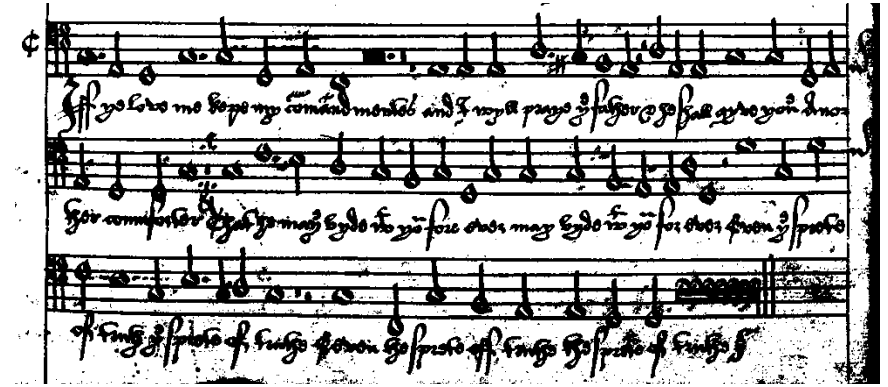 Iff ye love me kepe my comãdmentes and I wyll praye yͤ father & he shall gyve you anor
ther comforter that he may byde wͭ yoͧ fore ever may byde wͭ yoͧ for ever Even yͤ sprete
of truth yͤ sprete of truthe Even the sprete off truthe the sprete of truthe